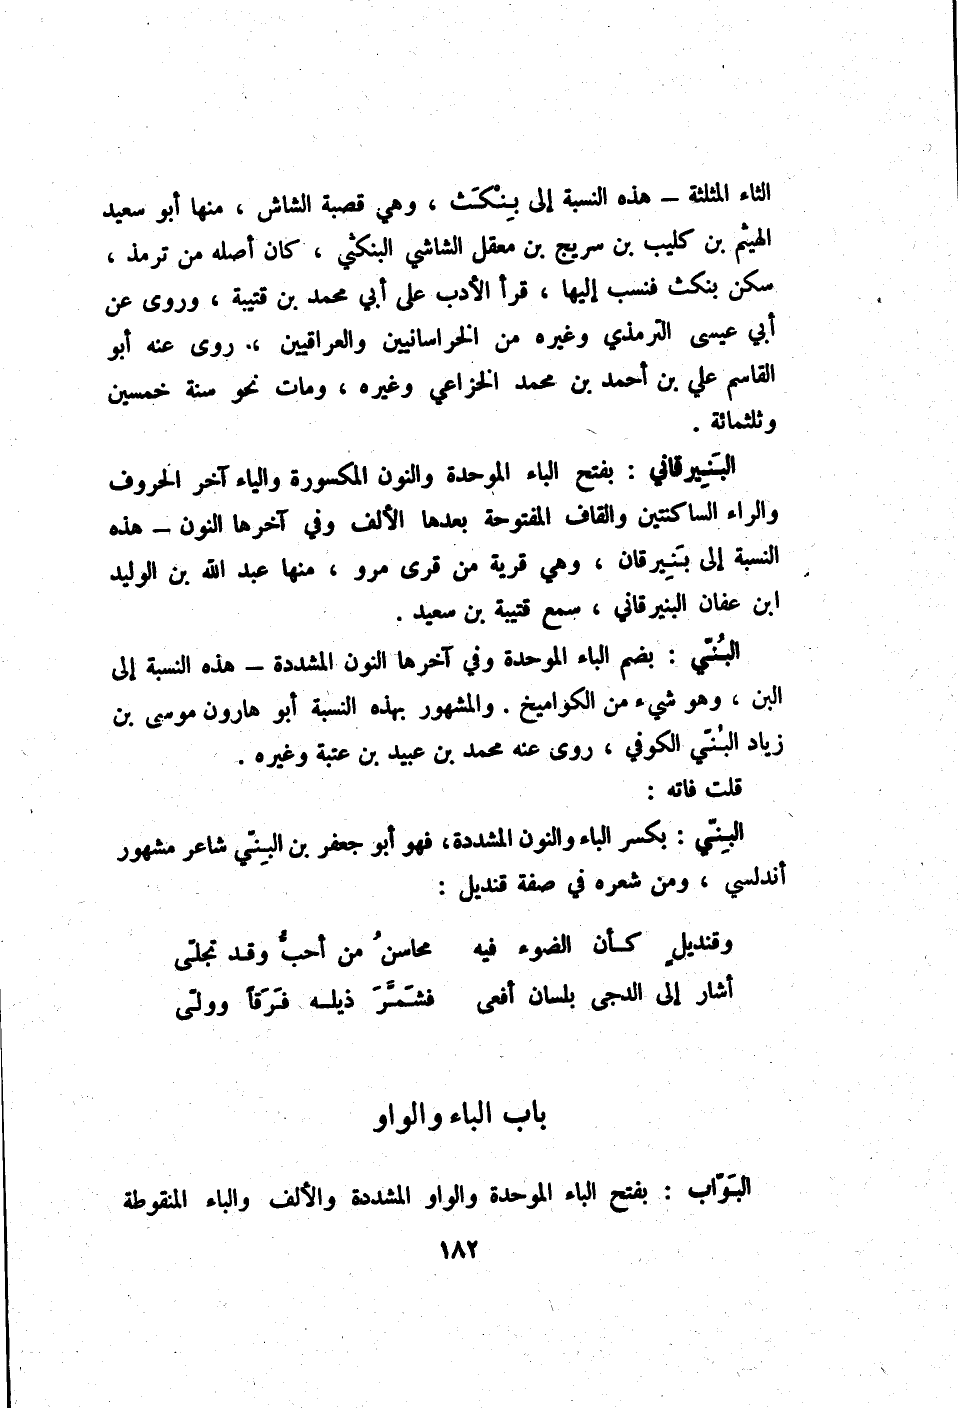 الثاء المثلثة – هذه النسبة إلى بِنْكَث ، وهي قصبة الشاش ، منها أبو سعيد
الهيثم بن كليب بن سريج بن معقل الشاشي البنكثي ، كان أصله من ترمذ ،
سكن بنكث فنسب إليها ، قرأ الأدب على أبي محمد بن قتيبة ، وروى عن
أبي عيسى الترمذي وغيره من الخراسانيين والعراقيين ، روى عنه أبو
القاسم علي بن أحمد بن محمد الخزاعي وغيره ، ومات نحو سنة خمسين
وثلثمائة .
البَنِيرقاني : بفتح الباء الموحدة والنون المكسورة والياء آخر الحروف
والراء الساكنتين والقاف المفتوحة بعدها الألف وفي آخرها النون – هذه
النسبة إلى بَنِيرقان ، وهي قرية من قرى مرو ، منها عبد الله بن الوليد
ابن عفان البنيرقاني ، سمع قتيبة بن سعيد .
البُنّي : بضم الباء الموحدة وفي آخرها النون المشددة – هذه النسبة إلى
البن ، وهو شيء من الكواميخ . والمشهور بهذه النسبة أبو هارون موسى بن
زياد البُنّي الكوفي ، روى عنه محمد بن عبيد بن عتبة وغيره .
قلت فاته :
البِنّي : بكسر الباء والنون المشددة، فهو أبو جعفر بن البِنّي شاعر مشهور
أندلسي ، ومن شعره في صفة قنديل :
وقنديلٍ كأن الضوء فيه محاسنُ من أحبُّ وقد تجلّى
أشار إلى الدجى بلسان أفعى فشَمَّرَ ذيله فَرَقاً وولّى
باب الباء والواو
البَوّاب : بفتح الباء الموحدة والواو المشددة والألف والباء المنقوطة
١٨٢